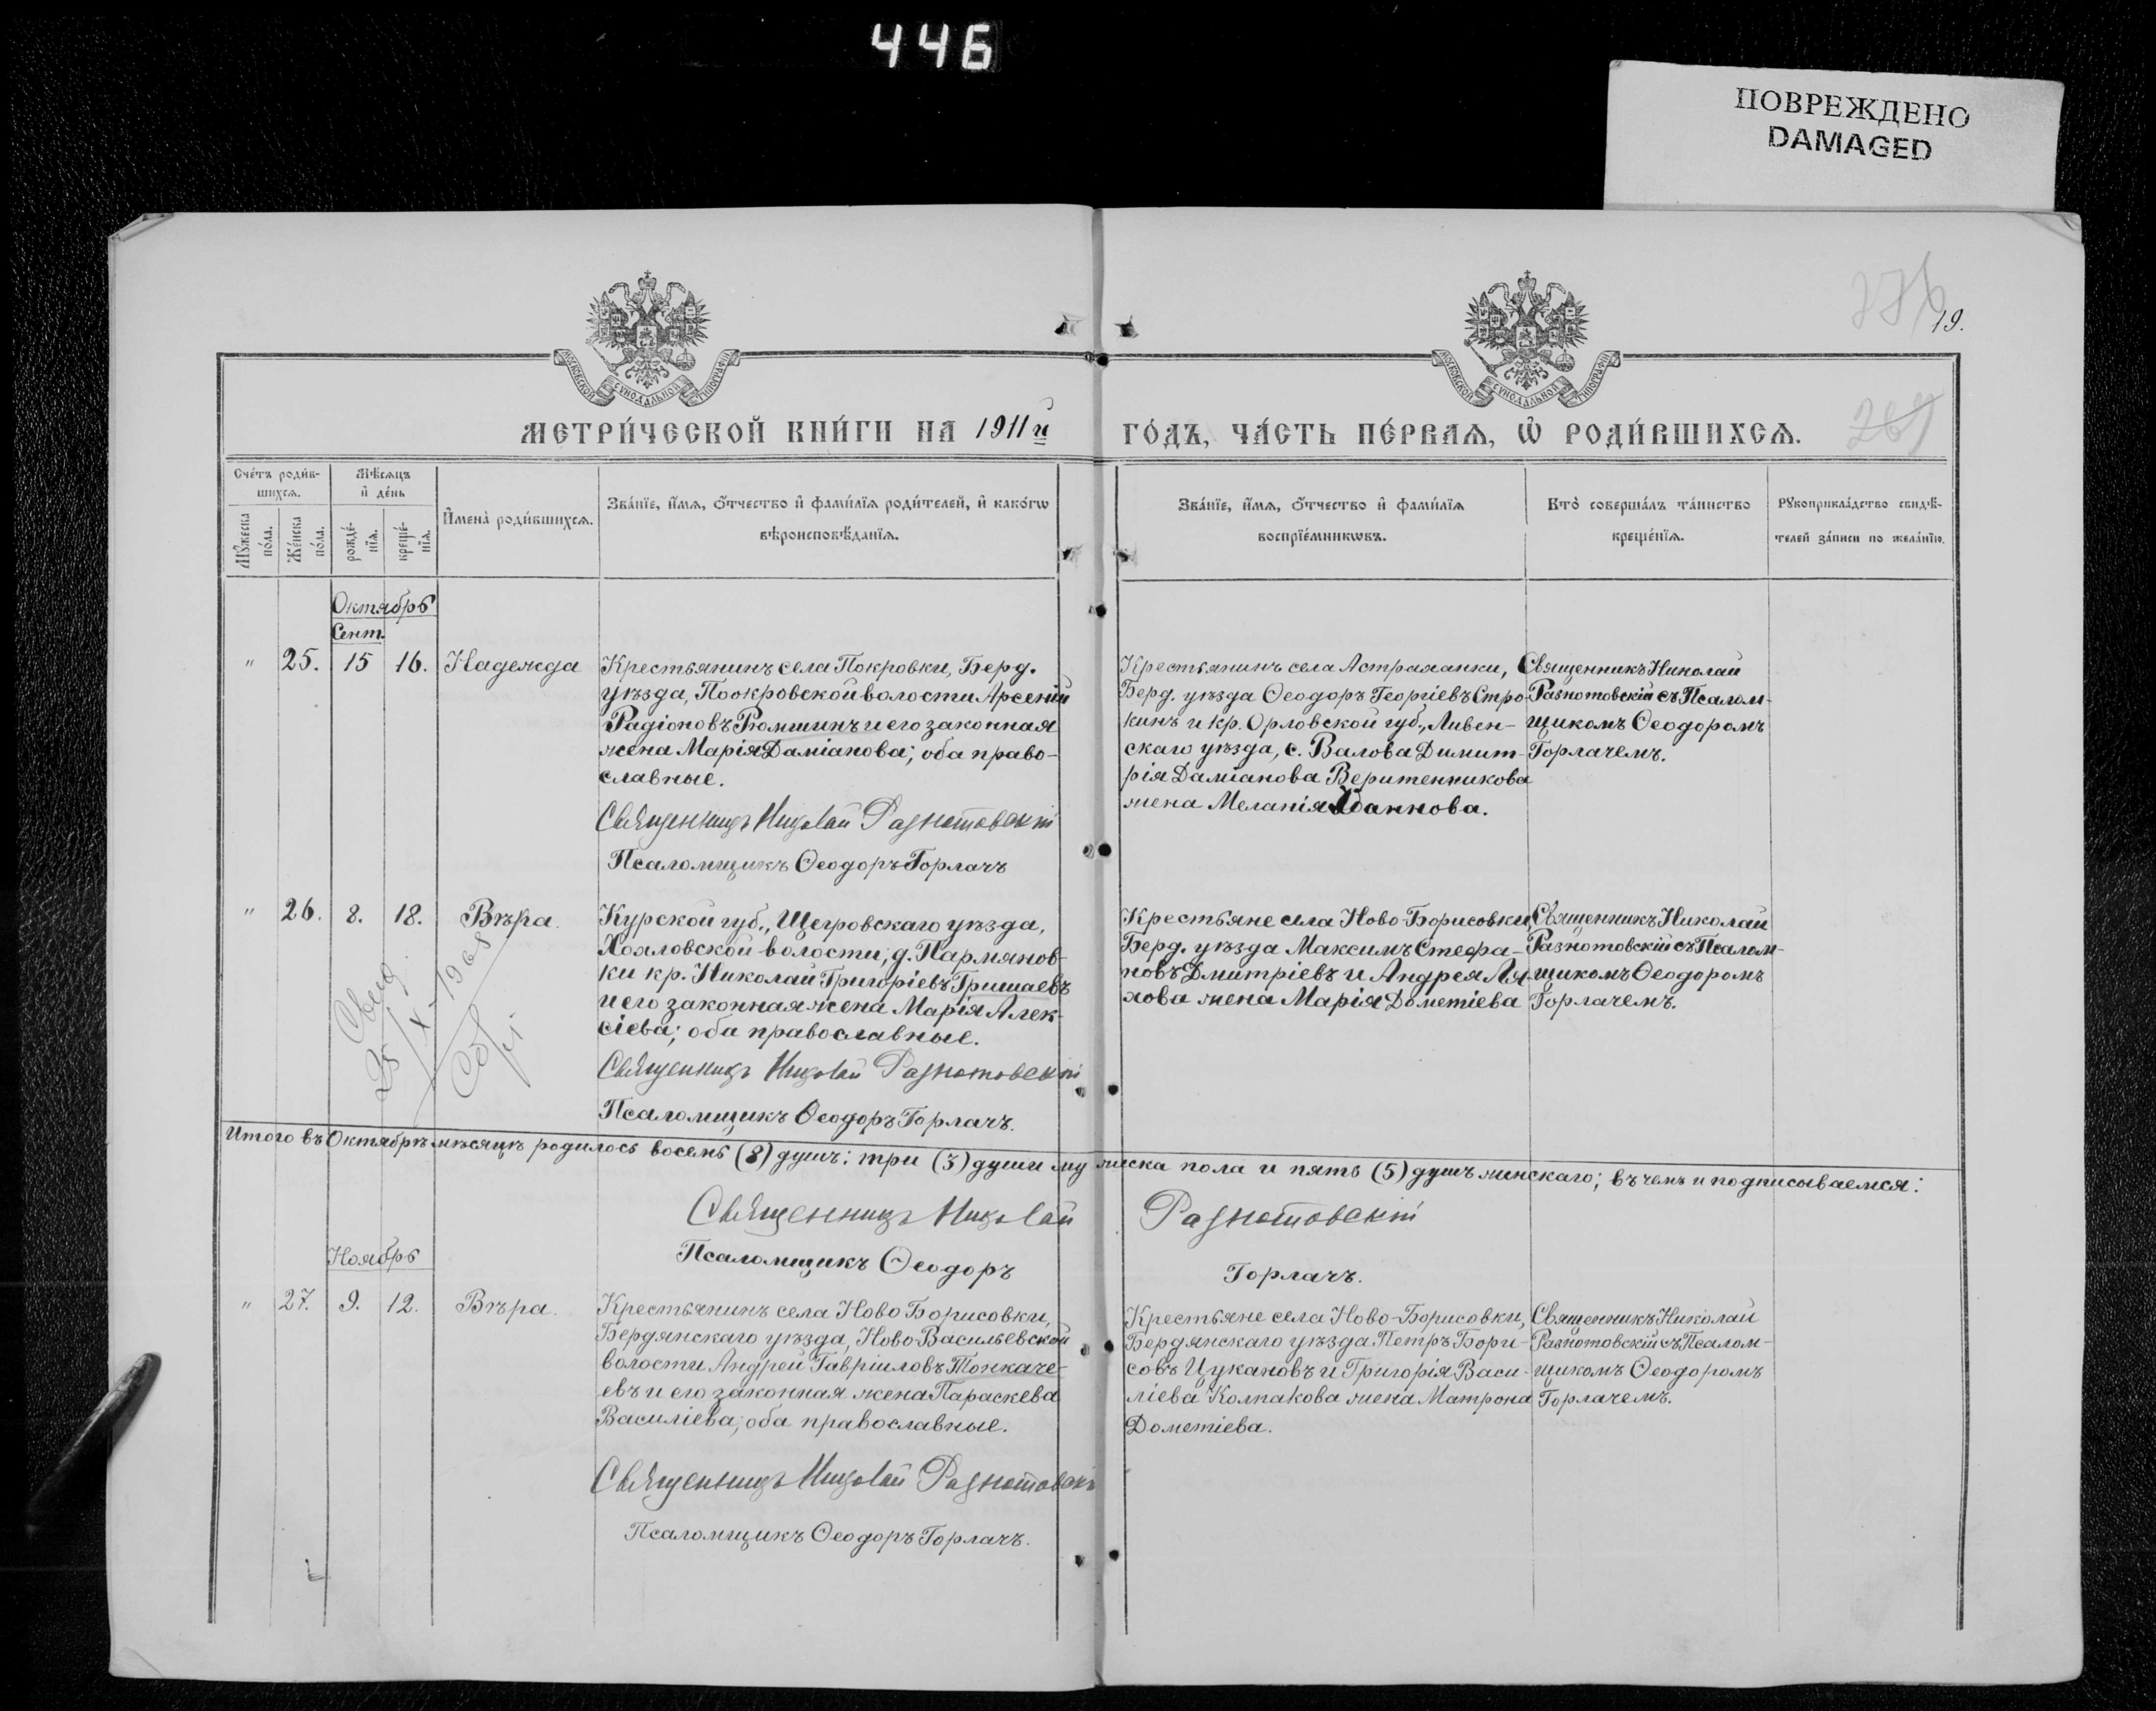 446
ПОВРЕЖДЕНО
DAMAGED
19.
МОСКОВСКОЙ СѴНОДАЛЬНОЙ ТИПОГРАФІИ
МОСКОВСКОЙ СѴНОДАЛЬНОЙ ТИПОГРАФІИ
МЕТРИ́ЧЕСКОЙ КНИ́ГИ НА 1911й ГО́ДЪ, ЧА́СТЬ ПЕ́РВАѦ, Ѽ РОДИ́ВШИХСѦ.
269
Сче́тъ роди́в-
шихсѧ.
Мѣ́сѧцъ
и҆ де́нь
Мꙋ́жеска
по́ла.
Же́нска
по́ла.
рожде́-
нїѧ.
креще́-
нїѧ.
И҆мена̀ роди́вшихсѧ.
Зва́нїе, и҆́мѧ, ѻ҆́тчество и҆ фами́лїѧ роди́телей, и҆ како́гѡ
вѣроисповѣ́данїѧ.
Зва́нїе, и҆́мѧ, ѻ҆́тчество и҆ фами́лїѧ
воспрїе́мникѡвъ.
Кто̀ соверша́лъ та́инство
креще́нїѧ.
Рꙋкоприкла́дство свидѣ́-
телей за́писи по жела́нїю.
Октябрь
Сент.
" 25. 15 16. Надежда
Крестьянинъ села Покровки, Берд.
уѣзда, Поокровской волости Арсеній
Радіоновъ Рюмшинъ и его законная
жена Марія Даміанова; оба право-
славные.
Священникъ Николай Разнотовскій
Псаломщикъ Ѳеодоръ Горлачъ
Крестьянинъ села Астраханки,
Берд. уѣзда Ѳеодоръ Георгіевъ Стро-
кинъ и кр. Орловской губ., Ливен-
скаго уѣзда, с. Валова Димит-
рія Даміанова Веритенникова
жена Меланія Іоаннова.
Священникъ Николай
Разнотовскій съ Псалом-
щикомъ Ѳеодоромъ
Горлачемъ.
" 26. 8. 18. Вѣра.
Курской губ., Щегровскаго уѣзда,
Хохловской волости, д. Пармянов-
ки кр. Николай Григоріевъ Гришаевъ
и его законная жена Марія Алек-
сіева; оба православные.
Священникъ Николай Разнотовскій
Псаломщикъ Ѳеодоръ Горлачъ.
Крестьяне села Ново-Борисовки,
Берд. уѣзда Максимъ Стефа-
новъ Дмитріевъ и Андрея Ля-
хова жена Марія Дометіева
Священникъ Николай
Разнотовскій съ Псалом-
щикомъ Ѳеодоромъ
Горлачемъ.
Итого въ Октябрѣ мѣсяцѣ родилось восемь (8) душъ: три (3) души мужеска пола и пять (5) душъ женскаго; въ чемъ и подписываемся:
Священникъ Николай Разнотовскій
Псаломщикъ Ѳеодоръ Горлачъ.
Ноябрь
" 27. 9. 12. Вѣра.
Крестьянинъ села Ново Борисовки,
Бердянскаго уѣзда, Ново-Васильевской
волости Андрей Гавріиловъ Толкаче-
евъ и его законная жена Параскева
Василіева; оба православные.
Священникъ Николай Разнотовскій
Псаломщикъ Ѳеодоръ Горлачъ.
Крестьяне села Ново-Борисовки,
Бердянскаго уѣзда Петръ Бори-
совъ Цукановъ и Григорія Васи-
ліева Колпакова жена Матрона
Дометіева.
Священникъ Николай
Разнотовскій съ Псалом-
щикомъ Ѳеодоромъ
Горлачемъ.